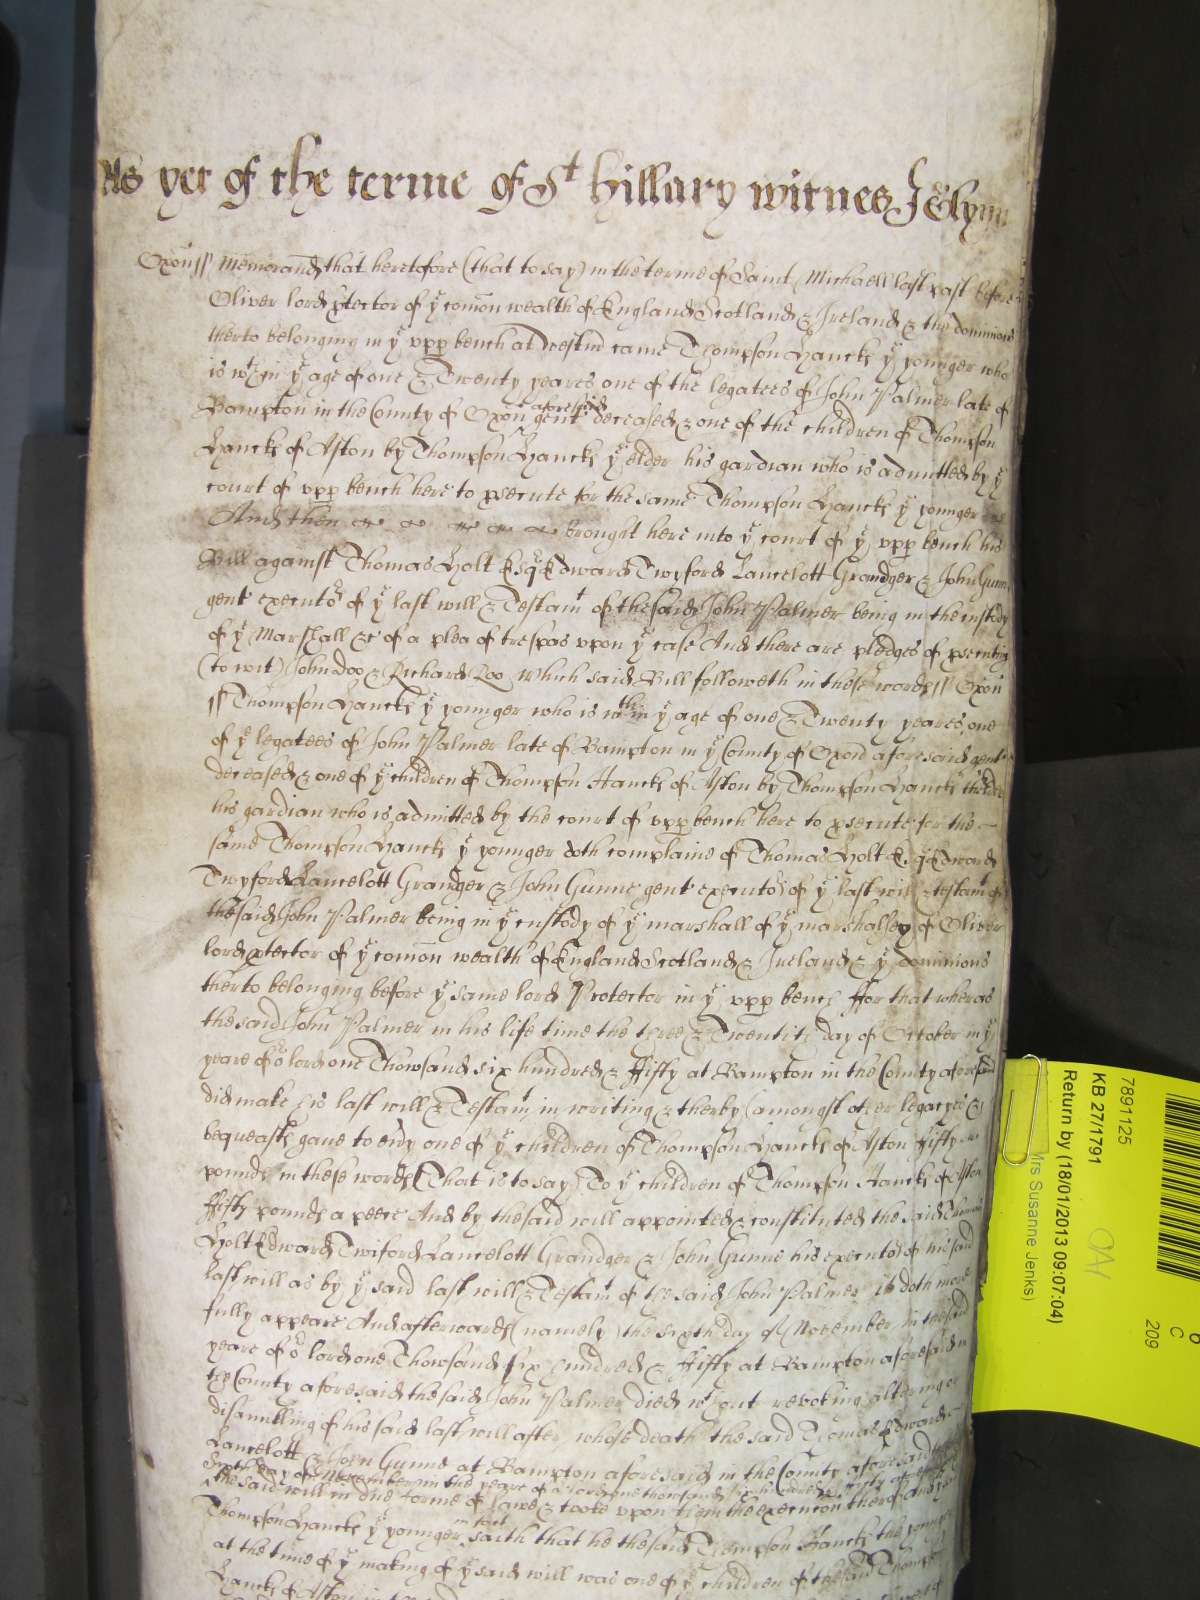 As yet of the terme of St Hillary witnes J Glynn
Oxon ss Memorand that heretofore (that to say) in the terme of Saint Michaell last past before
Oliver lord Ptector of ye comon wealth of England Scotland & Ireland & the dominions
therto belonging in ye upp bench at westm came Thompson Hancks ye younger who
is wthin ye age of one & Twenty yeares one of the legatees of John Palmer late of
Bampton in the County of Oxon aforesaid gent deceased & one of the children of Thompson
Hancks of Aston by Thompson Hancks ye elder his gardian who is admitted by ye
court of upp bench here to psecute for the same Thompson Hancks ye younger
And then brought here into ye court of ye upp bench his
Bill against Thomas Holt Esq Edward Twyford Lancelott Grandger & John Gunn
gent executors of ye last will & Testamt of the said John Palmer being in the custody
of ye Marshall &c of a plea of trespas upon ye case And there are pledges of psecuting
(to wit) John Doo & Richard Roo Which said Bill followeth in these words ss Oxon
ss Thompson Hancks ye younger who is wthin ye age of one & Twenty yeares one
of ye legatees of John Palmer late of Bampton in ye County of Oxon aforesaid gent
deceased & one of ye children of Thompson Hancks of Aston by Thompson Hancks the elder
his gardian who is admitted by the court of upp bench here to psecute for the
same Thompson Hancks ye younger doth complaine of Thomas Holt Esq Edward
Twyford Lancelott Grandger & John Gunne gent executors of ye last will & testamt of
the said John Palmer being in ye custody of ye marshall of ye marshalsey of Oliver
lord ptector of ye comon wealth of England Scotland & Ireland & ye dominions
therto belonging before ye same lord Protector in ye upp bench ffor that wheras
the said John Palmer in his life time the three & Twentith day of October in ye
yeare of or lord one Thowsand six hundred & ffiffty at Bampton in the County aforesaid
did make his last will & Testamt in writing & therby (amongst other legacyes &
bequeasts gave to evy one of ye children of Thompson Hancks of Aston ffifty
pounds in these words (That is to say) To ye children of Thompson Hancks of Aston
ffifty pounds a peece And by the said will appointed & constituted the said Thomas
Holt Edward Twiford Lancelott Grandger & John Gunne his executors of his said
last will as by ye said last will & Testamt of the said John Palmer it doth more
fully appeare And afterwards (namely) the sixth day of November in the said
yeare of or lord one Thowsand six hundred & ffiffty at Bampton aforesaid in
the County aforesaid the said John Palmer died wthout revoking altering or
disanulling of his said last will after whose death the said Thomas Edward
Lancelott & John Gunne at Bampton aforesaid in the County aforesaid
Sixth day of November in the yeare of or lord one thowsand six hundred & fifty aforesaid
the said will in due forme of lawe & tooke upon them the execucon therof And ye
Thompson Hancks ye younger in fact saith that he the said Thompson Hancks the younger
at the time of ye making of ye said will was one of ye children of the said Thompson
Hancks of Aston
7891125
KB 27/1791
Return by (18/01/2013 09:07:04)
Mrs Susanne Jenks)
C
209